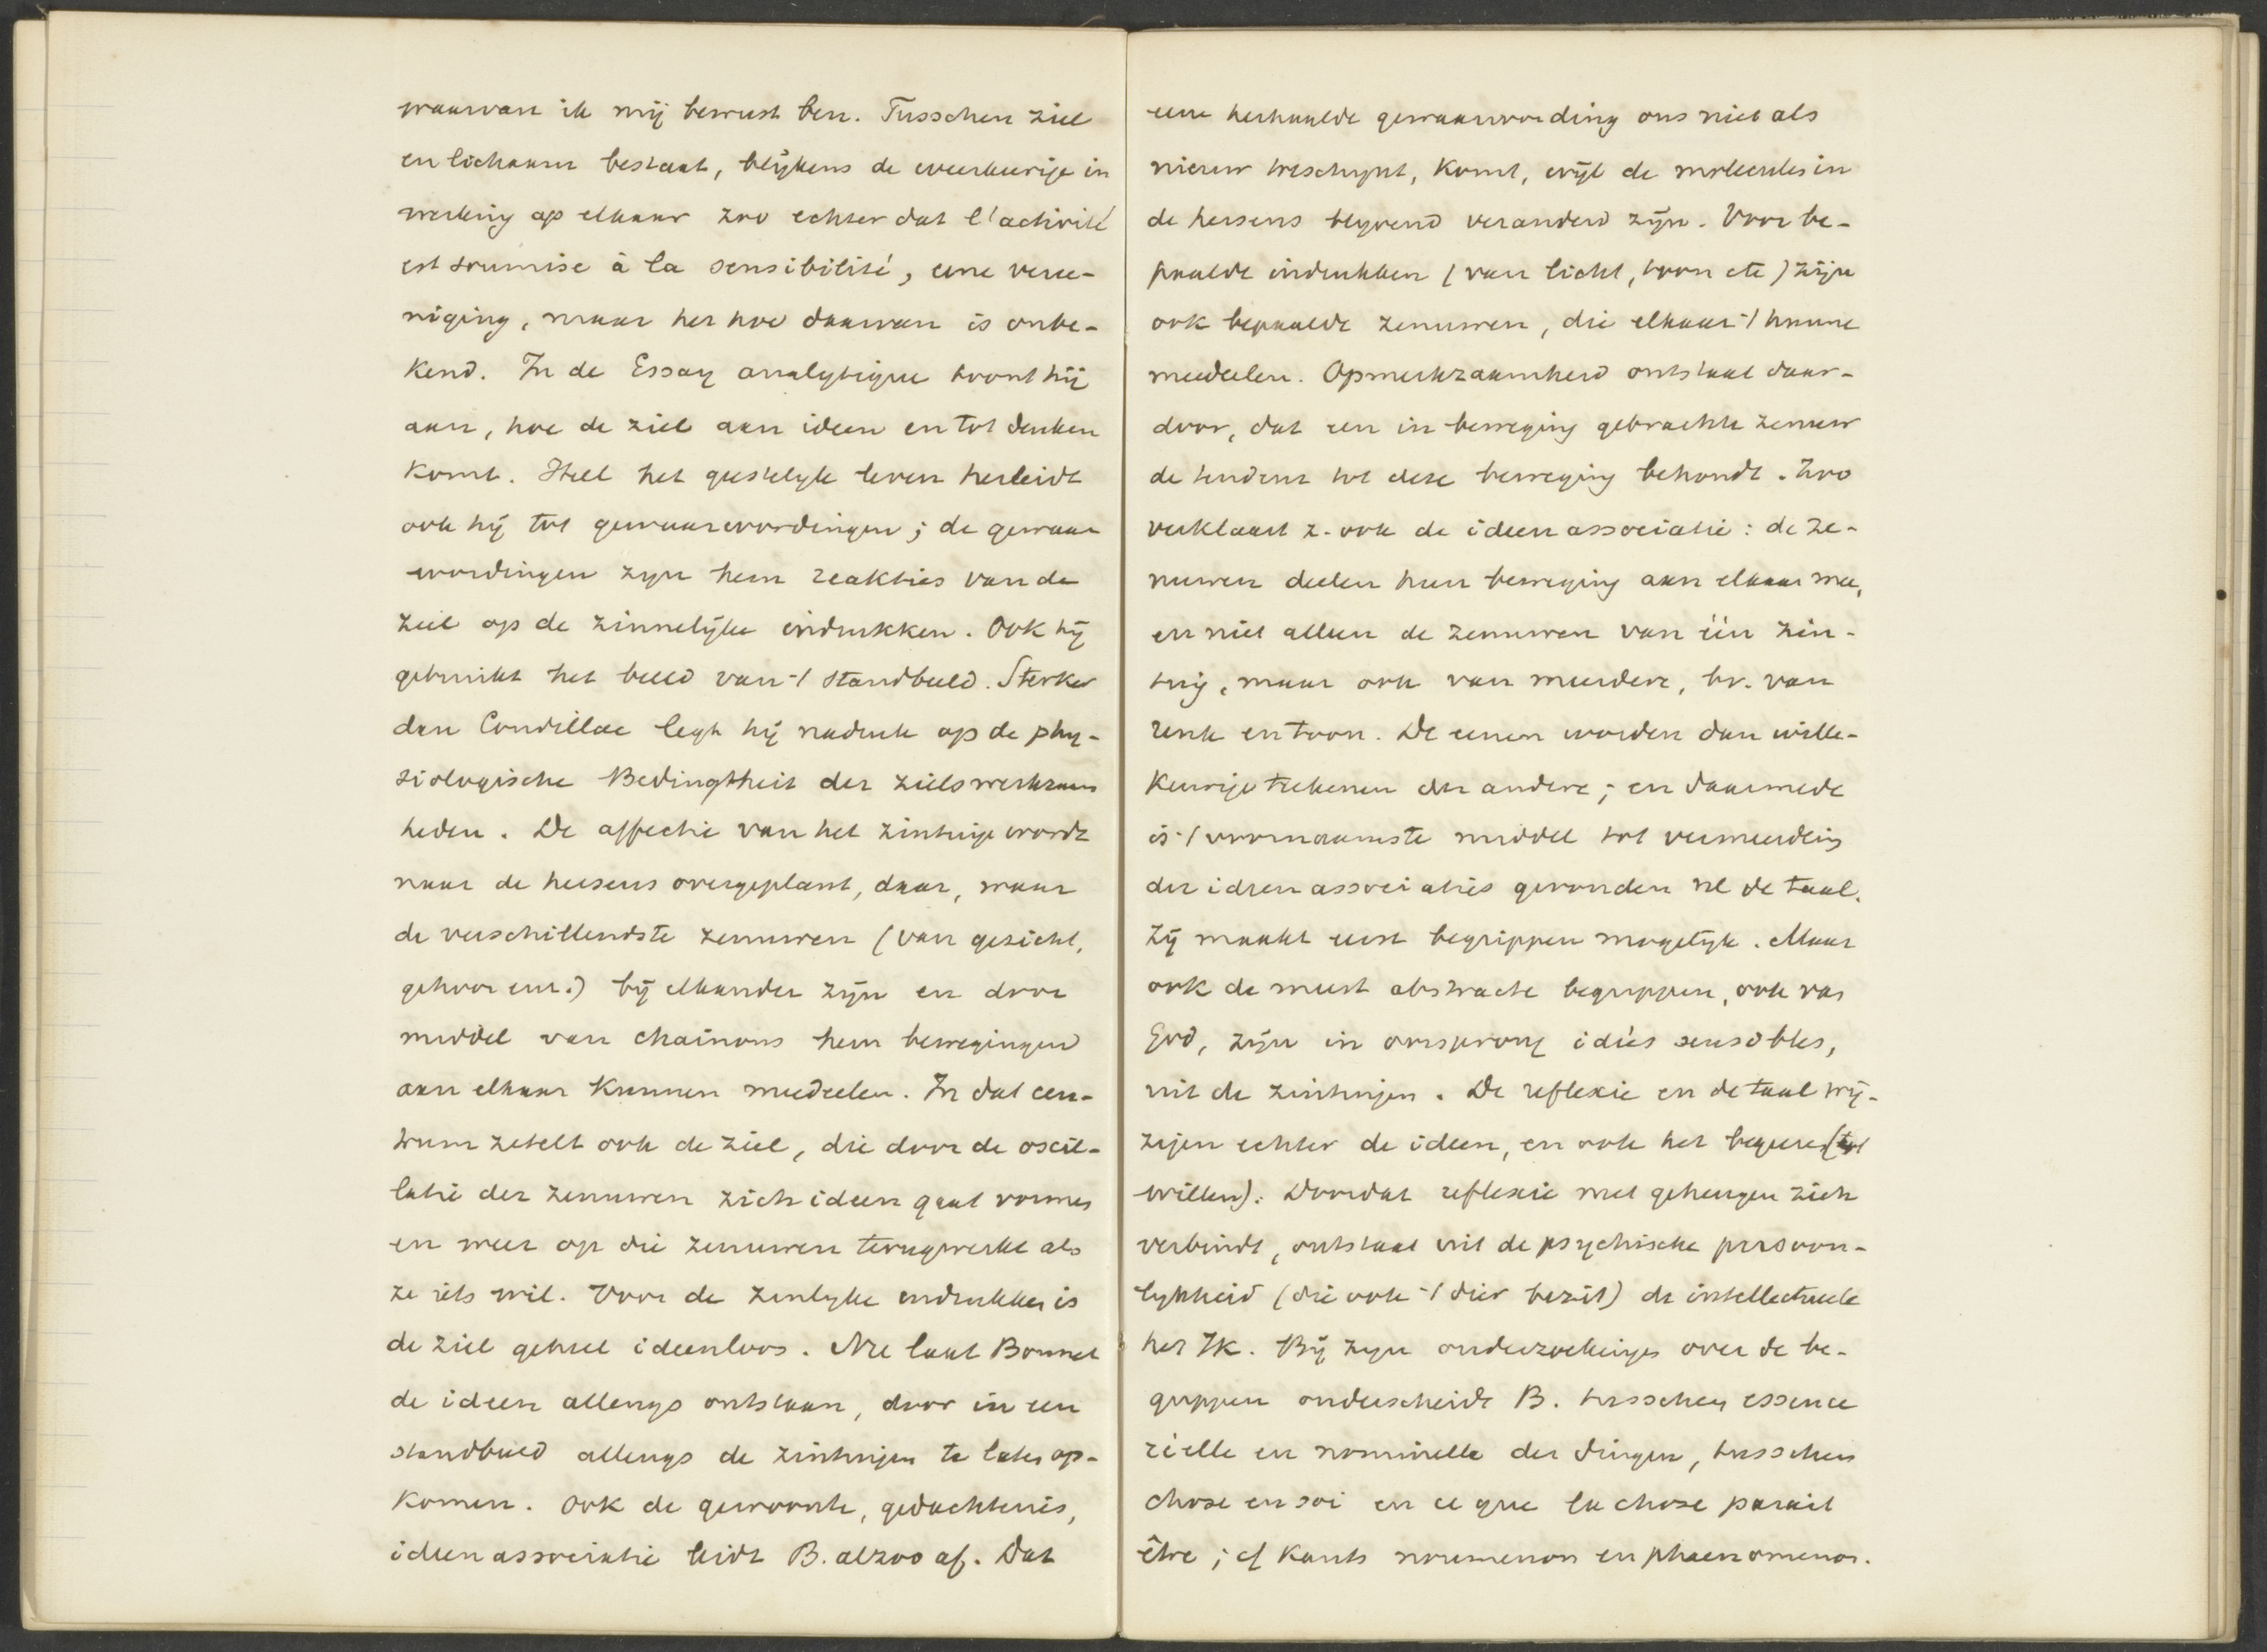 waarvan ik mij bewust ben. Tusschen ziel
en lichaam bestaat, blijkens de weerkeerige in
werking op elkaar zoo echter dat l'activité
est soumise à la sensibilité, eene vere-
niging, maar het hoe daarvan is onbe-
kend. In de Essay analytique toont hij
aan, hoe de ziel aan ideen en tot denken
komt. Heel het geestelyk leven herleidt
ook hij tot gewaarwordingen; de gewaar
wordingen zyn hem reakties van de
ziel op de zinnelijke indrukken. Ook hij
gebruikt het beeld van -/ standbeeld. Sterker
dan Condillac legt hij nadruk op de phy-
siologische Bedingtheit der zielswerkzaam
heden. De affectie van het zintuig wordt
naar de hersens overgeplant, daar, waar
de verschillendste zenuwen (van gezicht,
gehoor enz.) bij elkander zijn en door
middel van chainons hun bewegingen
aan elkaar kunnen mededeelen. In dat cen-
trum zetelt ook de ziel, die door de oscil-
latie der zenuwen zich ideen gaat vormen
en weer op die zenuwen terugwerkt als
ze iets wil. Voor de zinlyke indrukken is
de ziel geheel ideenloos. Nu laat Bonnet
de ideen allengs ontstaan, door in een
standbeeld allengs de zintuigen te laten op-
komen. Ook de gewoonte, gedachtenis,
ideenassociatie leidt B. alzoo af. Dat
eene herhaalde gewaarwording ons niet als
nieuw toeschynt, komt, wijl de moleculen in
de hersens blyvend veranderd zijn. Voor be-
paalde indrukken (van licht, toon etc) zijn
ook bepaalde zenuwen, die elkaar -/ hunne
meedeelen. Opmerkzaamheid ontstaat daar-
door, dat een in beweging gebrachte zenuw
de tendens tot deze beweging behoudt. Zoo
verklaart z. ook de ideenassociatie: de ze-
nuwen deelen hun beweging aan elkaar mee,
en niet alleen de zenuwen van één zin-
tuig, maar ook van meerdere, bv. van
reuk en toon. De eenen worden dan wille-
keurige teekenen der andere; en daarmede
is -/ voornaamste middel tot vermeerdering
der ideenassociaties gevonden nl de taal.
Zij maakt eerst begrippen mogelijk. Maar
ook de meest abstracte begrippen, ook van
God, zijn in oorsprong idées sensibles,
uit de zintuigen. De reflexie en de taal wij-
zigen echter de ideen, en ook het begeeren (tot
willen). Doordat reflexie met geheugen zich
verbindt, ontstaat uit de psychische persoon-
lykheid (die ook -/ dier bezit) de intellectueele
het Ik. Bij zyn onderzoekingen over de be-
grippen onderscheidt B. tusschen essence
réelle en nominelle der dingen, tusschen
chose en soi en ce que la chose parait
être; cf Kants noumenon en phaenomenon.